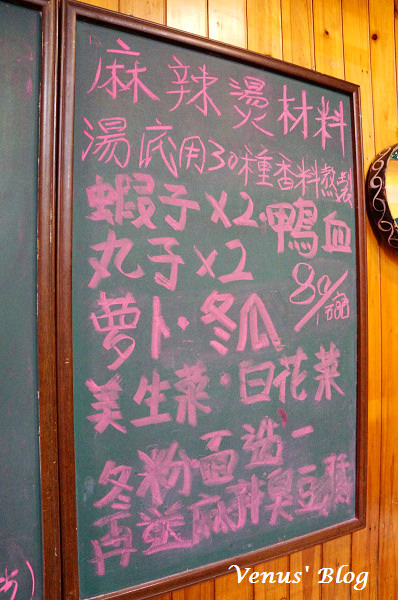 麻辣燙材料
湯底用30種香料熬製
蝦子x2·鴨血
丸子x2
80/
蘿卜·冬瓜
美生菜·白花菜
冬粉·面選一
再送麻辣臭豆腐
Venus' Blog